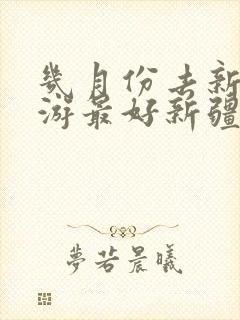 幾月份去新
游最好新疆
夢若晨曦